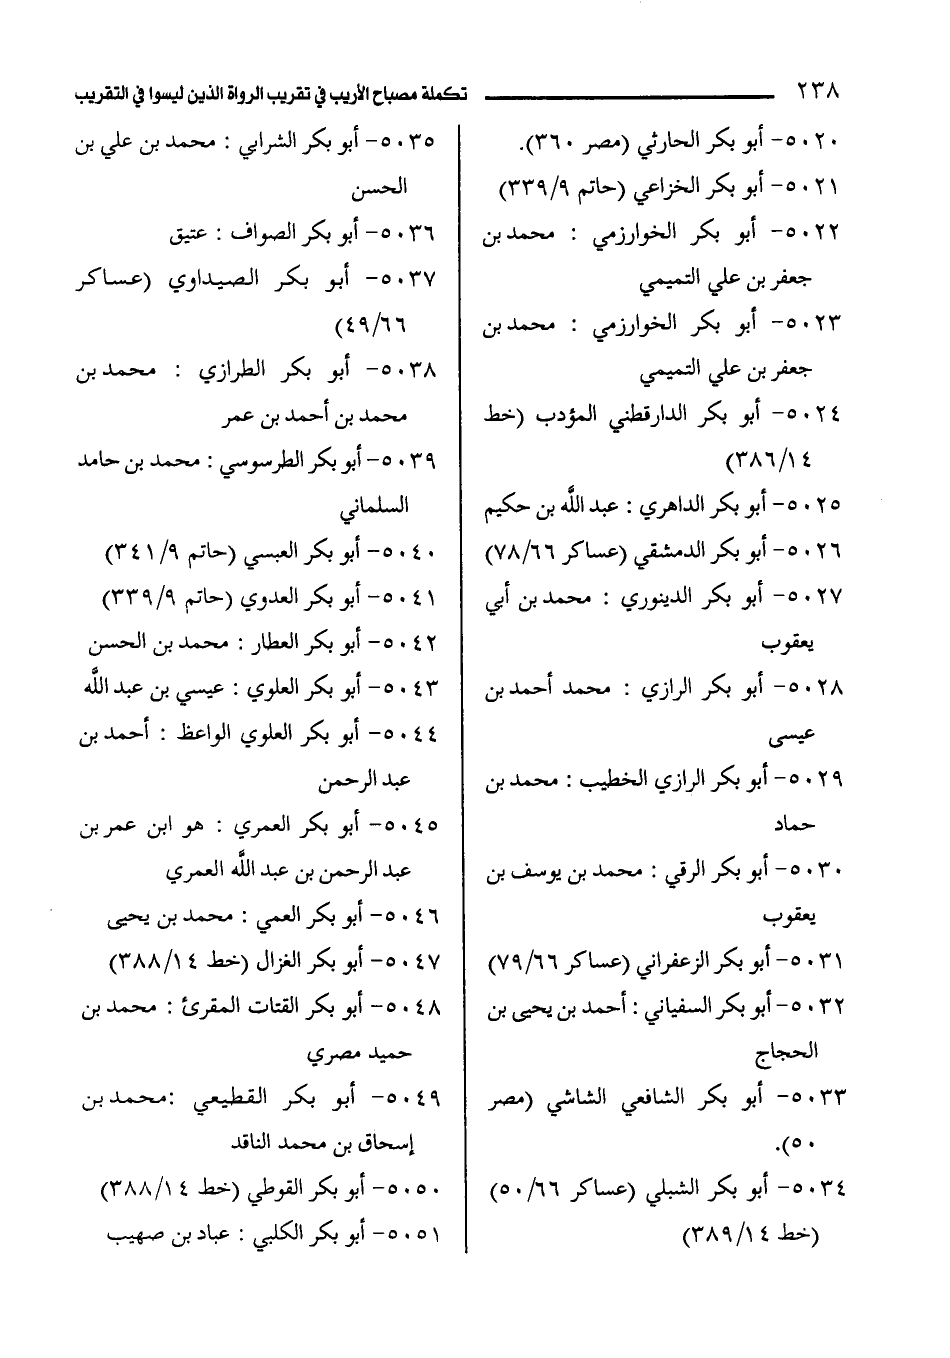 ٢٣٨ تكملة مصباح الأريب في تقريب الرواة الذين ليسوا في التقريب
٥٠٢٠- أبو بكر الحارثي (مصر ٣٦٠).
٥٠٢١- أبو بكر الخزاعي (حاتم ٣٣٩/٩)
٥٠٢٢- أبو بكر الخوارزمي : محمد بن
جعفر بن علي التميمي
٥٠٢٣- أبو بكر الخوارزمي : محمد بن
جعفر بن علي التميمي
٥٠٢٤- أبو بكر الدارقطني المؤدب (خط
٣٨٦/١٤)
٥٠٢٥- أبو بكر الداهري : عبد اللَّه بن حكيم
٥٠٢٦- أبو بكر الدمشقي (عساكر ٧٨/٦٦)
٥٠٢٧- أبو بكر الدينوري : محمد بن أبي
يعقوب
٥٠٢٨- أبو بكر الرازي : محمد أحمد بن
عيسى
٥٠٢٩- أبو بكر الرازي الخطيب : محمد بن
حماد
٥٠٣٠- أبو بكر الرقي : محمد بن يوسف بن
يعقوب
٥٠٣١- أبو بكر الزعفراني (عساكر ٧٩/٦٦)
٥٠٣٢- أبو بكر السفياني : أحمد بن يحيى بن
الحجاج
٥٠٣٣- أبو بكر الشافعي الشاشي (مصر
٥٠).
٥٠٣٤- أبو بكر الشبلي (عساكر ٥٠/٦٦)
(خط ٣٨٩/١٤)
٥٠٣٥- أبو بكر الشرابي : محمد بن علي بن
الحسن
٥٠٣٦- أبو بكر الصواف : عتيق
٥٠٣٧- أبو بكر الصيداوي (عساكر
٤٩/٦٦)
٥٠٣٨- أبو بكر الطرازي : محمد بن
محمد بن أحمد بن عمر
٥٠٣٩- أبو بكر الطرسوسي : محمد بن حامد
السلماني
٥٠٤٠- أبو بكر العبسي (حاتم ٣٤١/٩)
٥٠٤١- أبو بكر العدوي (حاتم ٣٣٩/٩)
٥٠٤٢- أبو بكر العطار : محمد بن الحسن
٥٠٤٣- أبو بكر العلوي : عيسي بن عبد اللَّه
٥٠٤٤- أبو بكر العلوي الواعظ : أحمد بن
عبد الرحمن
٥٠٤٥- أبو بكر العمري : هو ابن عمر بن
عبد الرحمن بن عبد اللَّه العمري
٥٠٤٦- أبو بكر العمي : محمد بن يحيى
٥٠٤٧- أبو بكر الغزال (خط ٣٨٨/١٤)
٥٠٤٨- أبو بكر القتات المقرئ : محمد بن
حميد مصري
٥٠٤٩- أبو بكر القطيعي :محمد بن
إسحاق بن محمد الناقد
٥٠٥٠- أبو بكر القوطي (خط ٣٨٨/١٤)
٥٠٥١- أبو بكر الكلبي : عباد بن صهيب